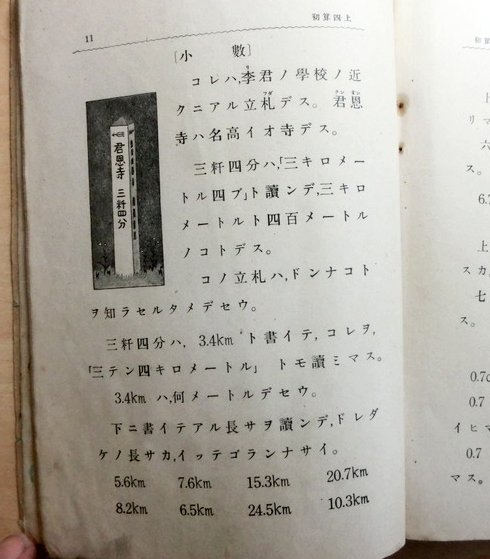 初算四上
11
〔小數〕
コレハ李君ノ學校ノ近
クニアル立札デス。君恩
寺ハ名高イオ寺デス。
君恩寺 三粁四分
三粁四分ハ,「三キロメー
トル四ブ」ト讀ンデ,三キロ
メートルト四百メートル
ノコトデス。
コノ立札ハ,ドンナコト
ヲ知ラセルタメデセウ。
三粁四分ハ, 3.4km ト書イテ, コレヲ,
「三テン四キロメートル」 トモ讀ミマス。
3.4km ハ,何メートルデセウ。
下ニ書イテアル長サヲ讀ンデ,ドレダ
ケノ長サカ,イッテゴランナサイ。
5.6km 7.6km 15.3km 20.7km
8.2km 6.5km 24.5km 10.3km
上
リマ
六
ス。
6.7
上
スカ
七
ス。
0.7c
0.7
イヒマ
0.7
マス。